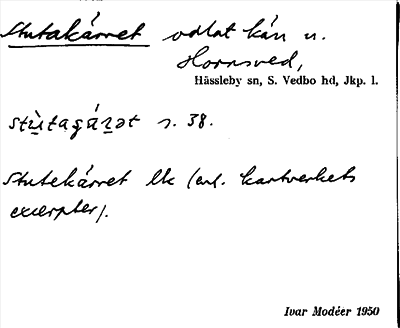 Stutakärret odlat kärr n.
Hornsved,
Hässleby sn, S. Vedbo hd, Jkp. l.
stùtaçárət s. 38.
Stutekärret lk (enl. kartverkets
excerpter).
Ivar Modéer 1950